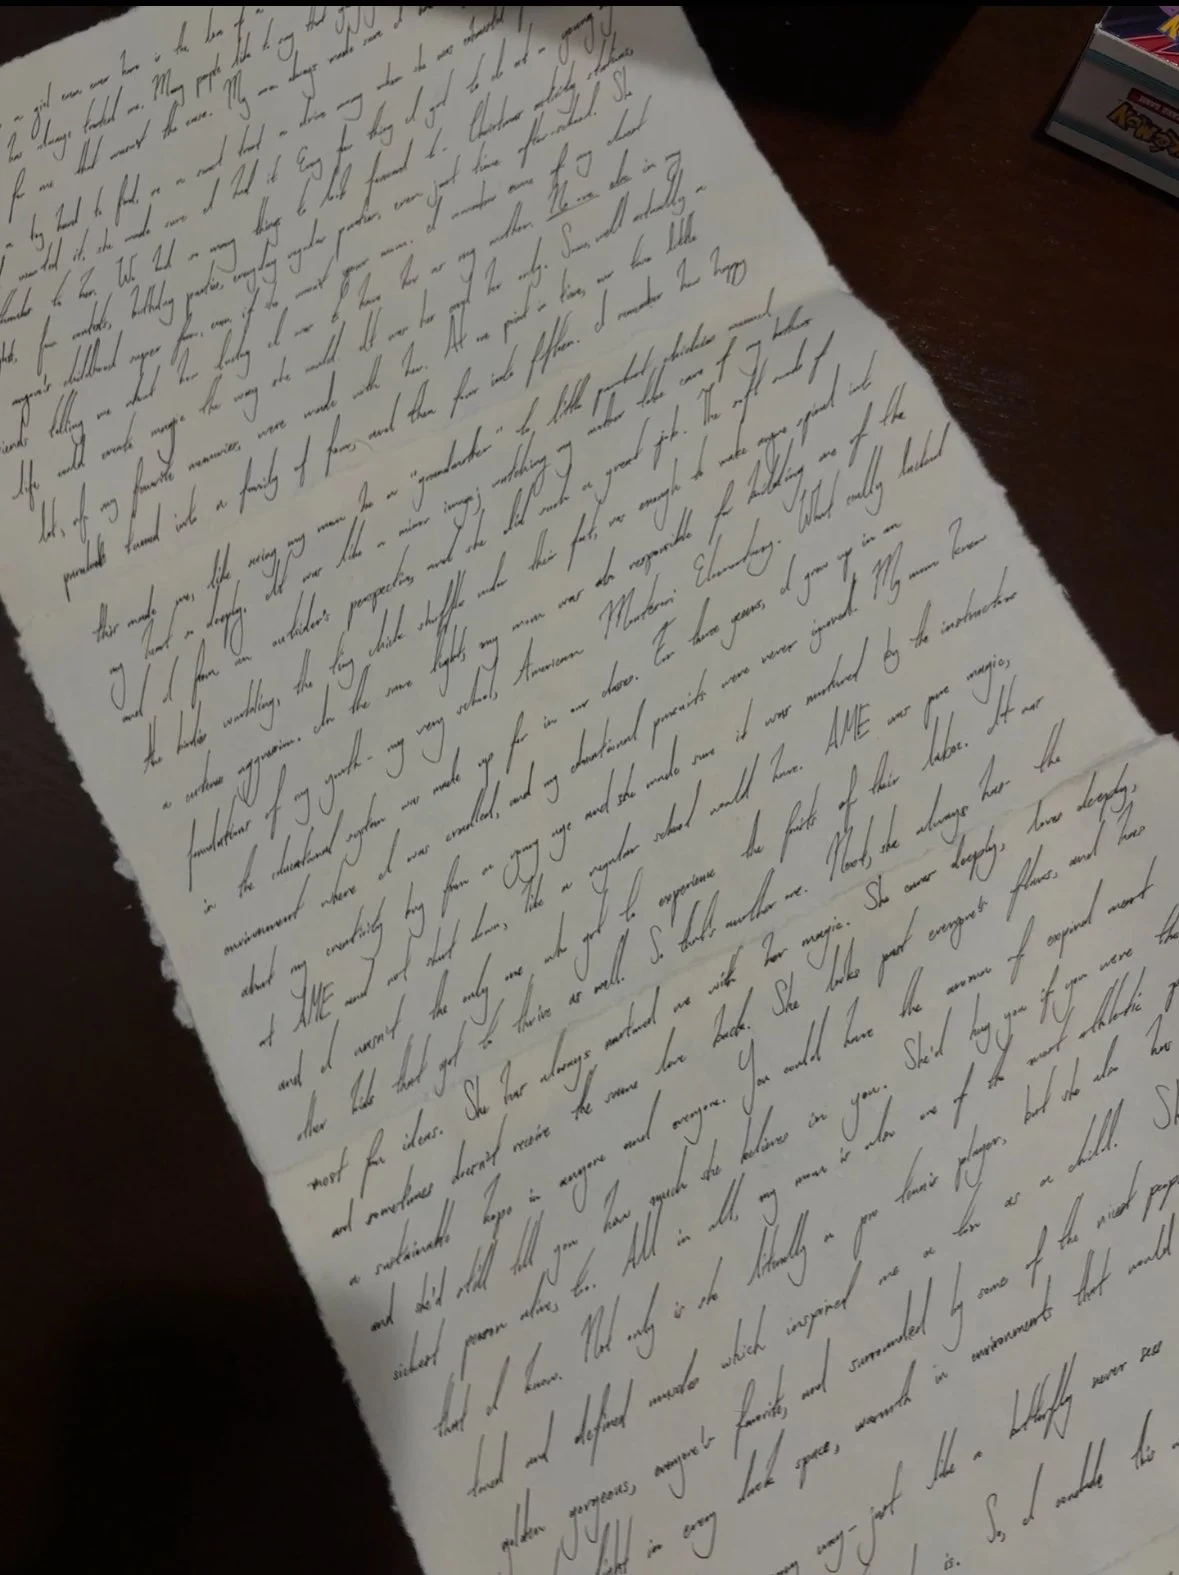 a girl ever, ever have is the love of a
has always treated me. Many people like to say that
for me that wasn't the case. My mom always made sure I
try hard to find, or a smart but a drive away when she was exhausted
I wanted it, she made sure I had it. Every fun thing I got to do at a young
thanks to her. We had so many things to look forward to- Christmas activity stations,
fun contests, birthday parties, everyday regular parties, even just time after-school. She
anyone's childhood super fun, even if she wasn't your mom. I remember some of my closest
friends telling me about how lucky I was to have her as my mother. No one else in my
life could create magic the way she could. It was her and her only. Some, well actually a
lot, of my favorite memories were made with her. At one point in time, our two little
parakeets turned into a family of four, and then four into fifteen. I remember how happy
this made me, like seeing my mom be a "grandmother" to little parakeet chickies warmed
my heart so deeply. It was like a mirror image, watching my mother take care of my brothers
and I from an outsider's perspective, and she did such a great job. The soft sounds of
the birdies warbling, the tiny chicks shuffle under their feet, was enough to make anyone spiral into
a cuteness aggression. In the same light, my mom was also responsible for building one of the
foundations of my youth- my very school, American Montessori Elementary. What really lacked
in the educational system was made up for in our classes. For three years, I grew up in an
environment where I was cradled, and my educational pursuits were never ignored. My mom knew
about my creativity bug from a young age and she made sure it was nurtured by the instructors
at AME and not shut down, like a regular school would have. AME was pure magic,
and I wasn't the only one who got to experience the fruits of their labor. It was
other kids that got to thrive as well. So that's another one. Next, she always has the
most fun ideas. She has always nurtured me with her magic. She cares deeply, loves deeply,
and sometimes doesn't receive the same love back. She looks past everyone's flaws, and has
a sustainable hope in anyone and everyone. You could have the aroma of expired meat
and she'd still tell you how much she believes in you. She'd hug you if you were the
sickest person alive, too. All in all, my mom is also one of the most athletic
that I know. Not only is she literally a pro tennis player, but she also has
toned and defined muscles which inspired me a ton as a child. She
golden gorgeous, everyone's favorite, and surrounded by some of the nicest people
light in every dark space, warmth in environments that would
way- just like a butterfly never sees
is. So, I conclude this
POKéMON
TRADING CARD GAME